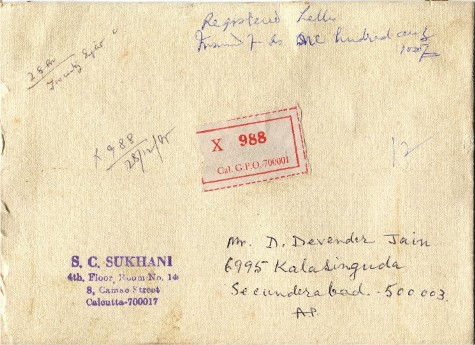 Registered Letter
Insured for Rs one hundred only
100/-
28 Rs
Twenty Eight
X 988
28/12/85
X 988
Cal. G.P.O.-700001
12
Mr. D. Devender Jain
6995 Kalasinguda
Secunderabad - 500 003.
A.P.
S. C. SUKHANI
4th, Floor, Room No. 14
8, Camac Street
Calcutta-700017